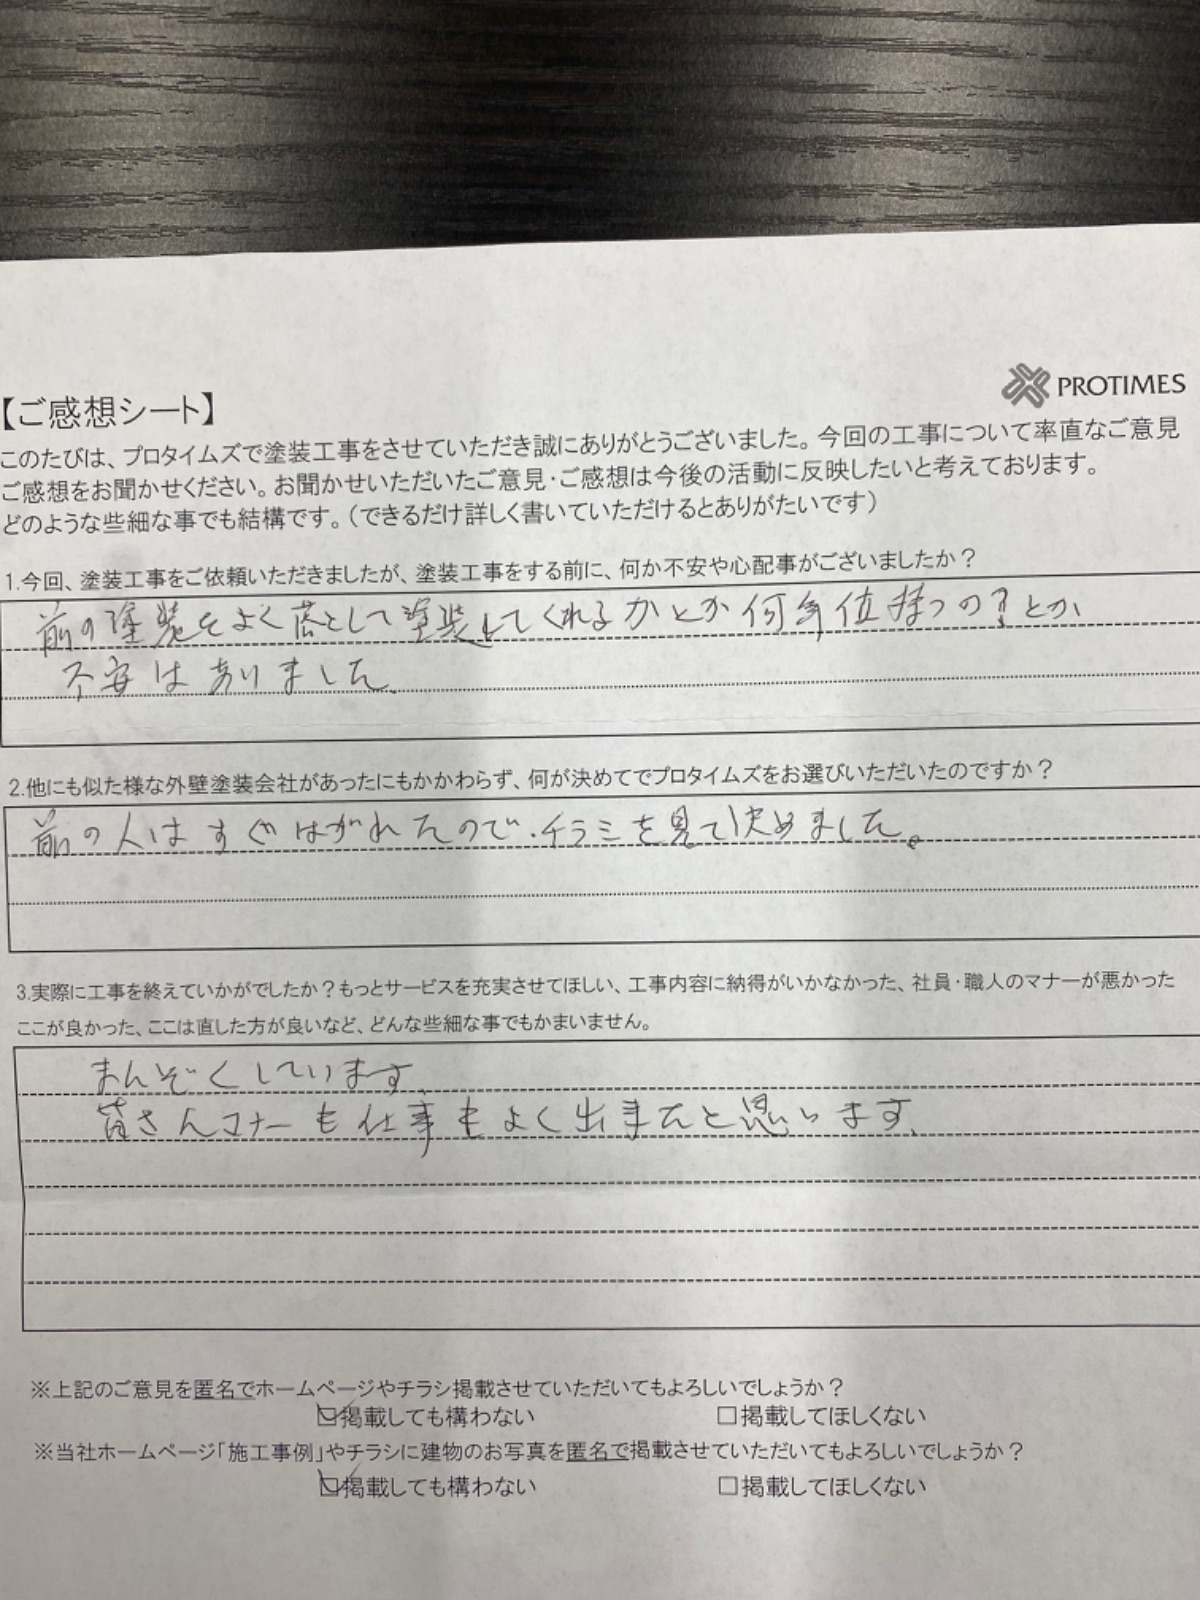 PROTIMES
【ご感想シート】
このたびは、プロタイムズで塗装工事をさせていただき誠にありがとうございました。今回の工事について率直なご意見
ご感想をお聞かせください。お聞かせいただいたご意見・ご感想は今後の活動に反映したいと考えております。
どのような些細な事でも結構です。（できるだけ詳しく書いていただけるとありがたいです）
1.今回、塗装工事をご依頼いただきましたが、塗装工事をする前に、何か不安や心配事がございましたか？
前の塗装をよく落として塗装してくれるかとか何年位持つの？とか
不安はありました。
2.他にも似た様な外壁塗装会社があったにもかかわらず、何が決めてでプロタイムズをお選びいただいたのですか？
前の人はすぐはがれたので、チラシを見て決めました。
3.実際に工事を終えていかがでしたか？もっとサービスを充実させてほしい、工事内容に納得がいかなかった、社員・職人のマナーが悪かった
ここが良かった、ここは直した方が良いなど、どんな些細な事でもかまいません。
まんぞくしています。
皆さんマナーも仕事もよく出来たと思います。
※上記のご意見を匿名でホームページやチラシ掲載させていただいてもよろしいでしょうか？
☑掲載しても構わない □掲載してほしくない
※当社ホームページ「施工事例」やチラシに建物のお写真を匿名で掲載させていただいてもよろしいでしょうか？
☑掲載しても構わない □掲載してほしくない